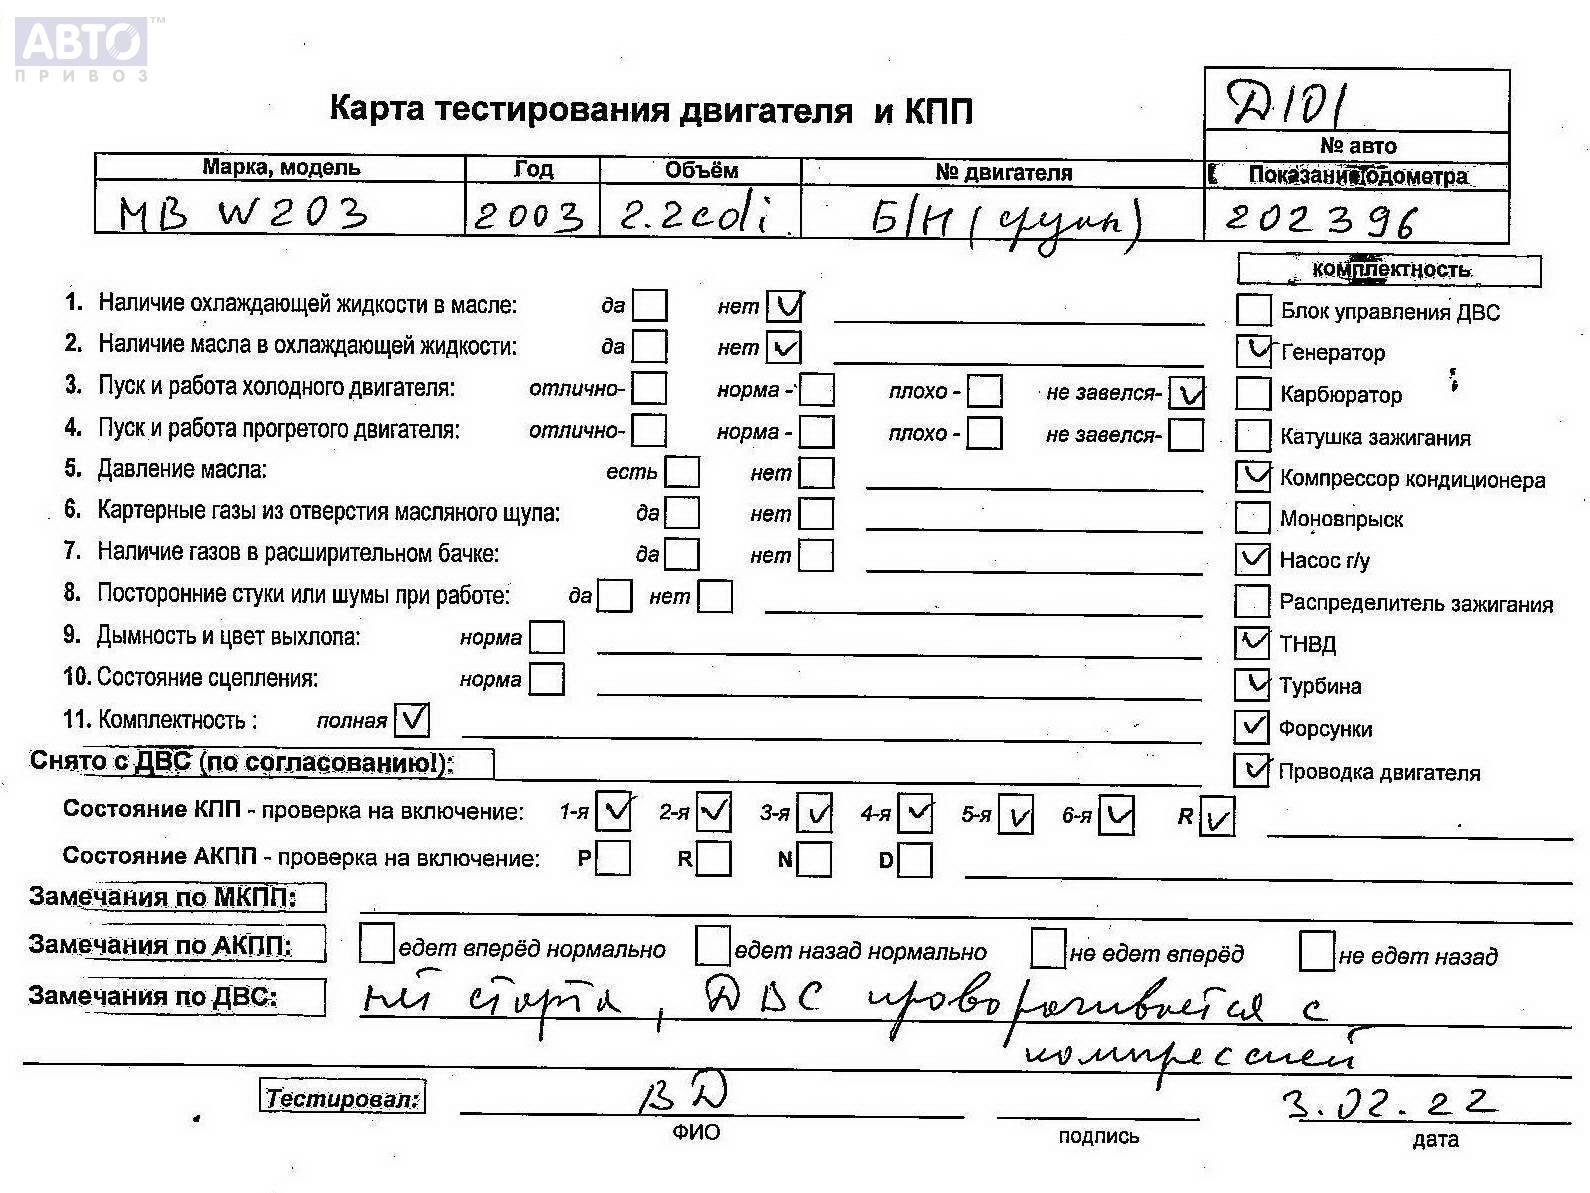 АВТО™
ПРИВОЗ
Д101
Карта тестирования двигателя и КПП
№ авто
Марка, модель Год Объём № двигателя Показание одометра
MB W203 2003 2.2cdi Б/Н ( ) 202396
комплектность
1. Наличие охлаждающей жидкости в масле: да нет Блок управления ДВС
2. Наличие масла в охлаждающей жидкости: да нет Генератор
3. Пуск и работа холодного двигателя: отлично- норма - плохо - не завелся- Карбюратор
4. Пуск и работа прогретого двигателя: отлично- норма - плохо - не завелся- Катушка зажигания
5. Давление масла: есть нет Компрессор кондиционера
6. Картерные газы из отверстия масляного щупа: да нет Моновпрыск
7. Наличие газов в расширительном бачке: да нет Насос г/у
8. Посторонние стуки или шумы при работе: да нет Распределитель зажигания
9. Дымность и цвет выхлопа: норма ТНВД
10. Состояние сцепления: норма Турбина
11. Комплектность : полная Форсунки
Снято с ДВС (по согласованию!): Проводка двигателя
Состояние КПП - проверка на включение: 1-я 2-я 3-я 4-я 5-я 6-я R
Состояние АКПП - проверка на включение: P R N D
Замечания по МКПП:
Замечания по АКПП: едет вперёд нормально едет назад нормально не едет вперёд не едет назад
Замечания по ДВС: нет старта, ДВС проворачивается с
компрессией
Тестировал: ВД 3.02.22
ФИО подпись дата